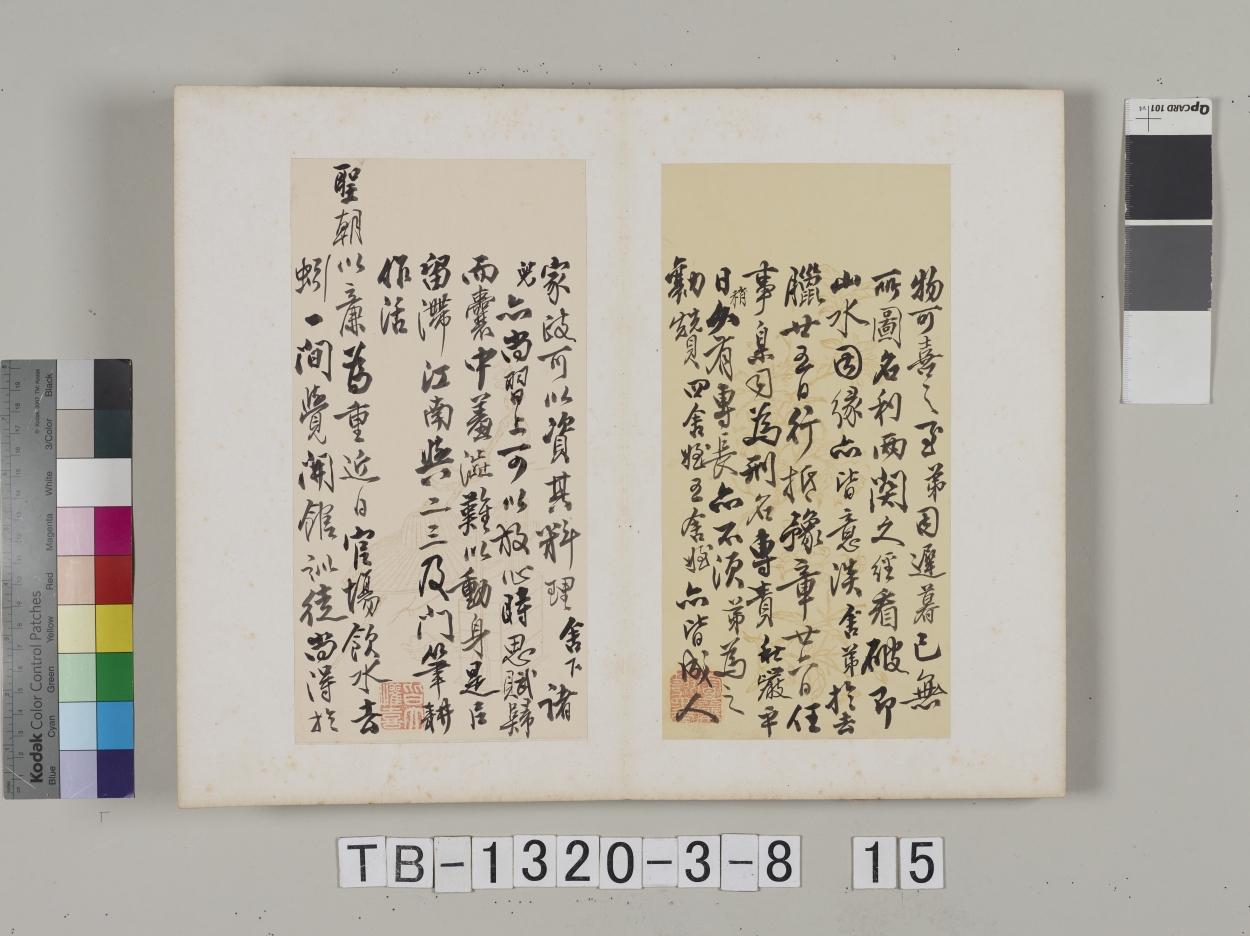 物可喜之至弟因遲暮已無
所圖名利兩関之經看破即
山水因緣亦皆意淡舍弟於去
臘廿五日行抵豫章廿六日任
事臬司為刑名專責秋嚴平
日稍有專長亦不須弟為之
勷贊四舍姪五舍姪亦皆成人
家政可以資其料理舍下諸
兒亦尚習上可以放心時思賦歸
而囊中羞澁難以動身是以
留滯江南與二三及門筆耕
作活
聖朝以廉為重近日宦場飲水去
蚓一間覺開館訓徒尚得於
Kodak Color Control Patches
Blue
Cyan
Green
Yellow
Red
Magenta
White
3/Color
Black
QPCARD 101
TB-1320-3-8 15